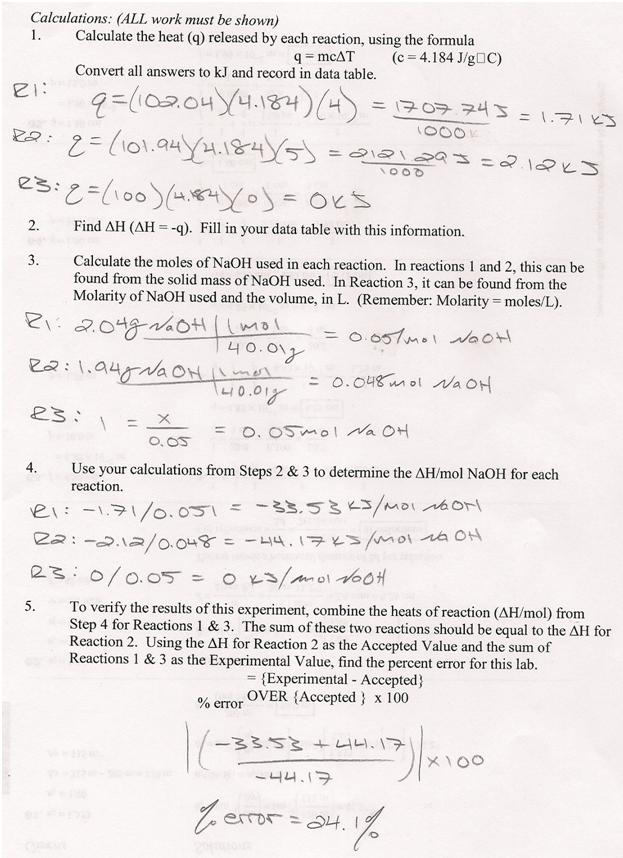 Calculations: (ALL work must be shown)
1. Calculate the heat (q) released by each reaction, using the formula
q = mcΔT (c = 4.184 J/g□C)
Convert all answers to kJ and record in data table.
R1: q=(102.04)(4.184)(4) = 1707.74J / 1000 = 1.71 kJ
R2: q=(101.94)(4.184)(5) = 2121.29J / 1000 = 2.12 kJ
R3: q=(100)(4.184)(0) = 0 kJ
2. Find ΔH (ΔH = -q). Fill in your data table with this information.
3. Calculate the moles of NaOH used in each reaction. In reactions 1 and 2, this can be
found from the solid mass of NaOH used. In Reaction 3, it can be found from the
Molarity of NaOH used and the volume, in L. (Remember: Molarity = moles/L).
R1: 2.04g NaOH | 1 mol
40.01g = 0.051 mol NaOH
R2: 1.94g NaOH | 1 mol
40.01g = 0.048 mol NaOH
R3: 1 = x / 0.05 = 0.05 mol NaOH
4. Use your calculations from Steps 2 & 3 to determine the ΔH/mol NaOH for each
reaction.
R1: -1.71/0.051 = -33.53 kJ/mol NaOH
R2: -2.12/0.048 = -44.17 kJ/mol NaOH
R3: 0/0.05 = 0 kJ/mol NaOH
5. To verify the results of this experiment, combine the heats of reaction (ΔH/mol) from
Step 4 for Reactions 1 & 3. The sum of these two reactions should be equal to the ΔH for
Reaction 2. Using the ΔH for Reaction 2 as the Accepted Value and the sum of
Reactions 1 & 3 as the Experimental Value, find the percent error for this lab.
= {Experimental - Accepted}
% error OVER {Accepted } x 100
|(-33.53 + 44.17 / -44.17)| x100
% error = 24.1%